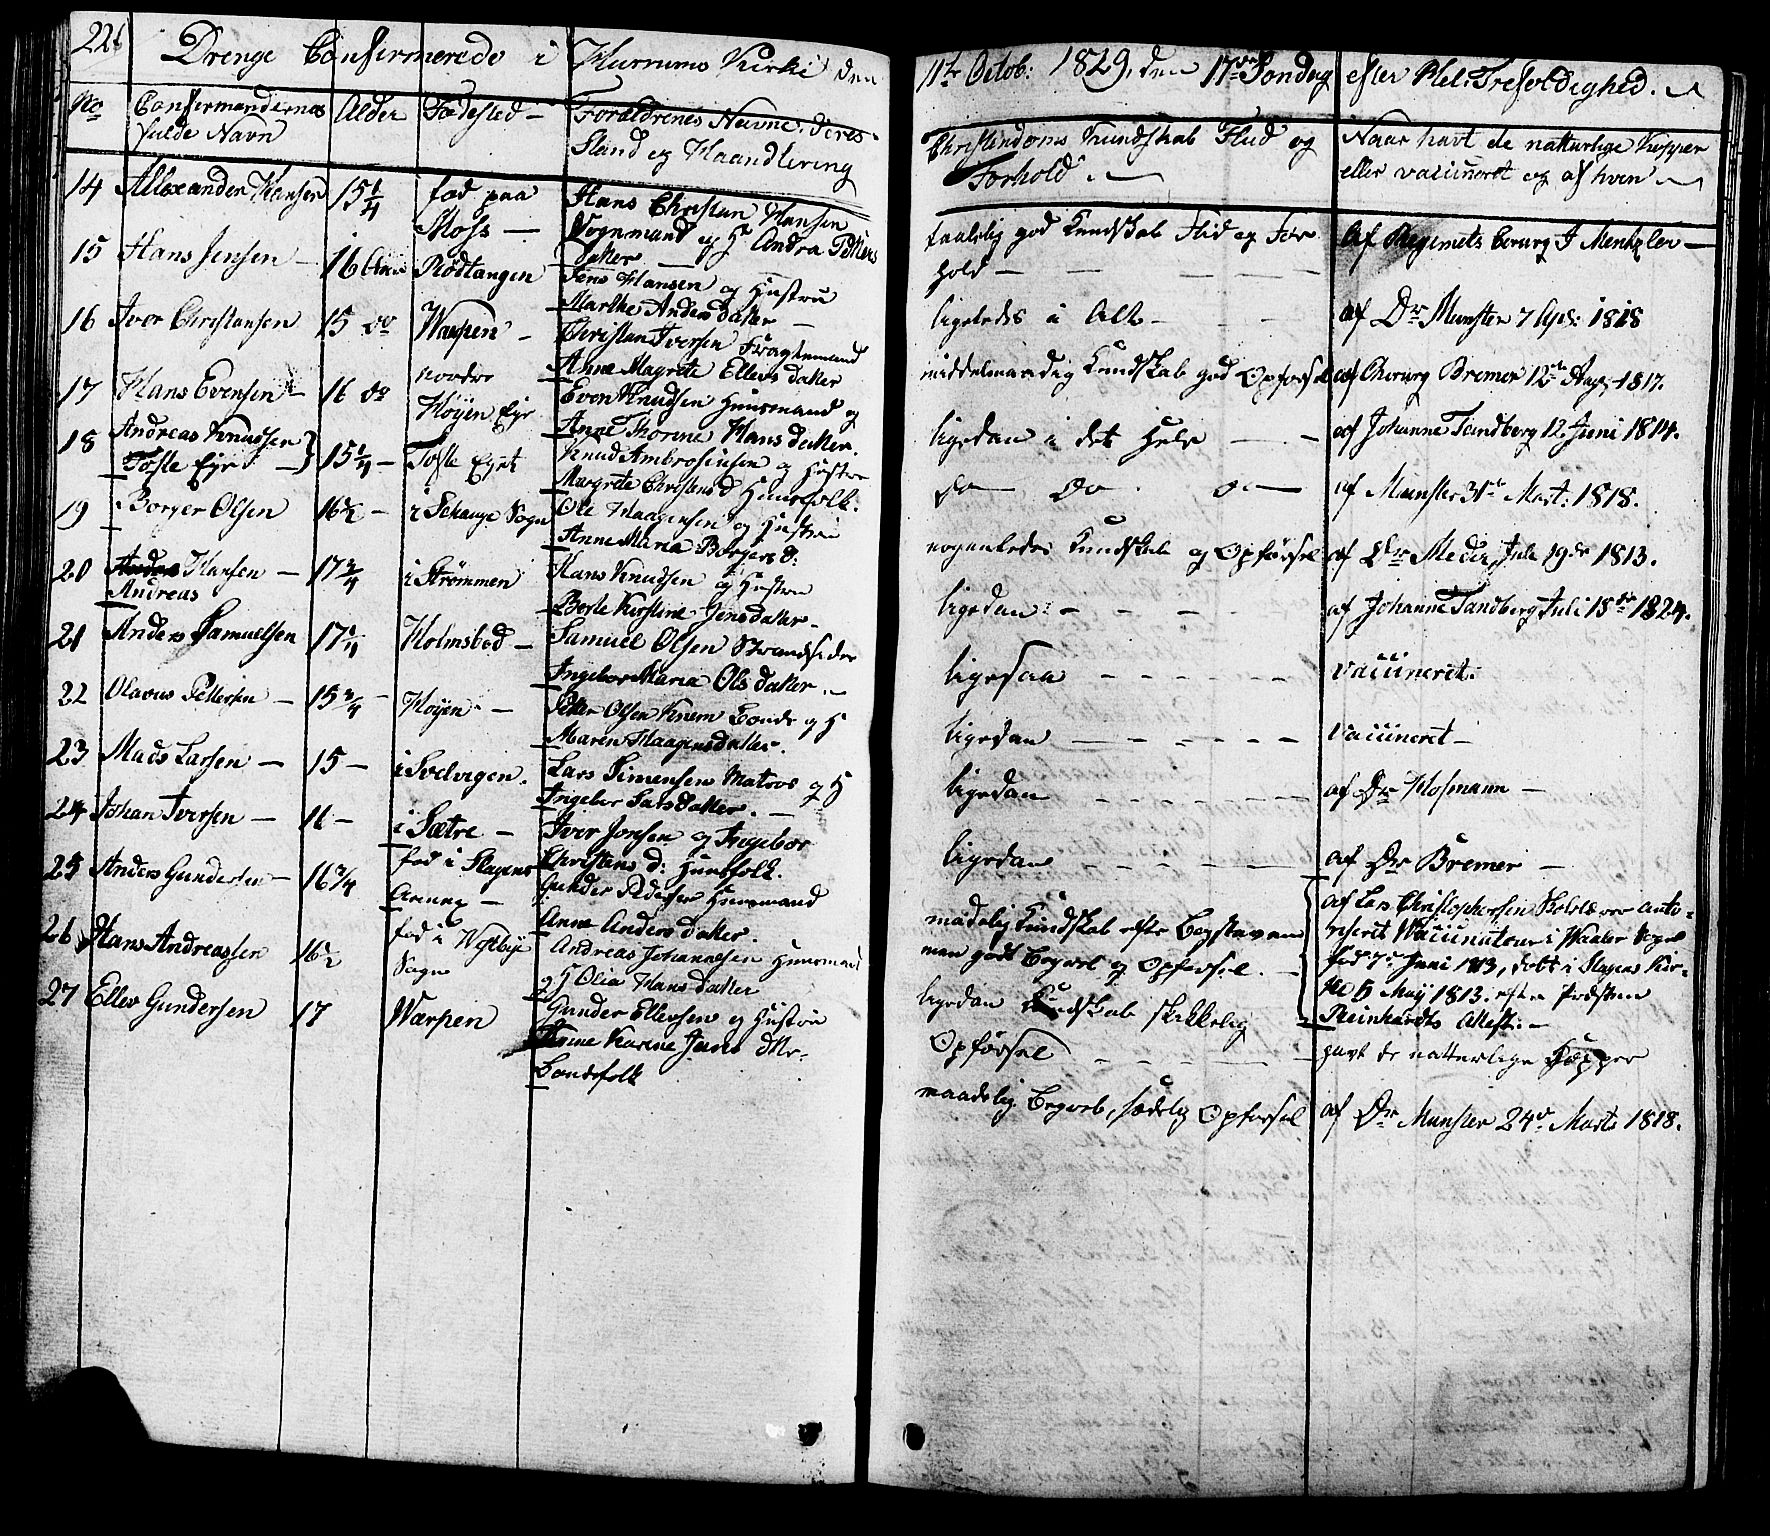 226
Drenge Confirmerede i Hurrums Kirke den 11te Octob: 1829, den 17de Søndag efter Hel: Trefoldighed.
No
Confirmandernes
fulde Navn
Alder
Fødested
Forældrenes Navne, deres
Stand og Haandtering
Christendoms Kundskab Flid og
Forhold
Naar havt de natturlige Kopper
eller vaccineret og af hvem
14 Allexander Hansen 15 1/4 fød paa
Moss
Hans Christian Hansen
Vognmand og H Andra Petters
daker
taalelig god Kundskab Flid og For
hold
af Regimets Cirurg J Mentzler
15 Hans Jensen 16 Aar Rødtangen
Jens Hansen og Hustru
Marthe Anders daker
ligeledes i Alt
af Dr Munster 7 Apr: 1818
16 Iver Christiansen 15 do Warpen
Christian Iversen Fragtemand
Anne Magrete Ellevs daker
middelmaadig Kundskab god Opførsel
af Cirurg Bremer 12te Aug: 1817.
17 Hans Evensen 16 do nordre
Høyen Eje
Even Knudsen Huusmand og
Anne Thorine Hans daker.
ligedan i det Hele
af Johanne Tandberg 12 Juni 1814.
18 Andreas Knudsen
Tofte Eye
15 1/4 Tofte Eyet
Knud Ambrosiusen og Hustru
Margrete Christens d Huusfolk.
do do do
af Munster 31te Mart: 1818.
19 Borger Olsen 16 1/2 i Schauge Sogn
Ole Haagensen og Hustru
Anne Maria Borgers d:
nogenledes Kundskab og Opførsel
af Dr Meden, Juli 19de 1813.
20 Anders Hansen
Andreas
17 3/4 i Strømmen
Hans Knudsen og Hustru
Berte Kirstine Jensdaker
ligedan
af Johanne Tandberg Juli 18de 1824.
21 Anders Samuelsen 17 1/4 Holmsbod
Samuel Olsen Strandsider
Ingebor Maria Ols daker
ligesaa
vaccineret.
22 Olavus Pettersen 15 3/4 Høyen
Peter Olsen Knem Bonde og H
Maren Haagensdaker.
ligedan
vaccineret
23 Mads Larsen 15 i Svelvigen.
Lars Simensen Matros og H
Ingebor Larsdaker.
ligedan
af Dr Hofmann
24 Johan Iversen 16 i Sætre
Iver Jonsen og Ingebor
Christens d: Huusfolk.
ligedan
af Dr Bremer
25 Anders Gundersen 16 3/4 fød i Slagens
Annex
Gunder Pedersen Huusmand
Anne Anders daker.
maadelig Kundskab efter Bogstaven
men godt Begreb og Opførsel.
af Lars Christophersen autho-
riseret Vaccinateur i Waaler Sogn
fød 7de Juni 1813, døbt i Slagens Kir-
ke
Reinhardts Attest.
26 Hans Andreassen 16 1/2 fød i Westbye
Sogn
Andreas Johannesen Huusmand
og H Olia Hans daker
ligedan Kundskab skikkelig
Opførsel
havt de natturlige Kopper
27 Ellev Gundersen 17 Warpen
Gunder Ellevsen og Hustru
Anne Karine Jens dtr.
Bondefolk
maadelig Begreb, sædelig Opførsel
af Dr Munster 24de Marts 1818.